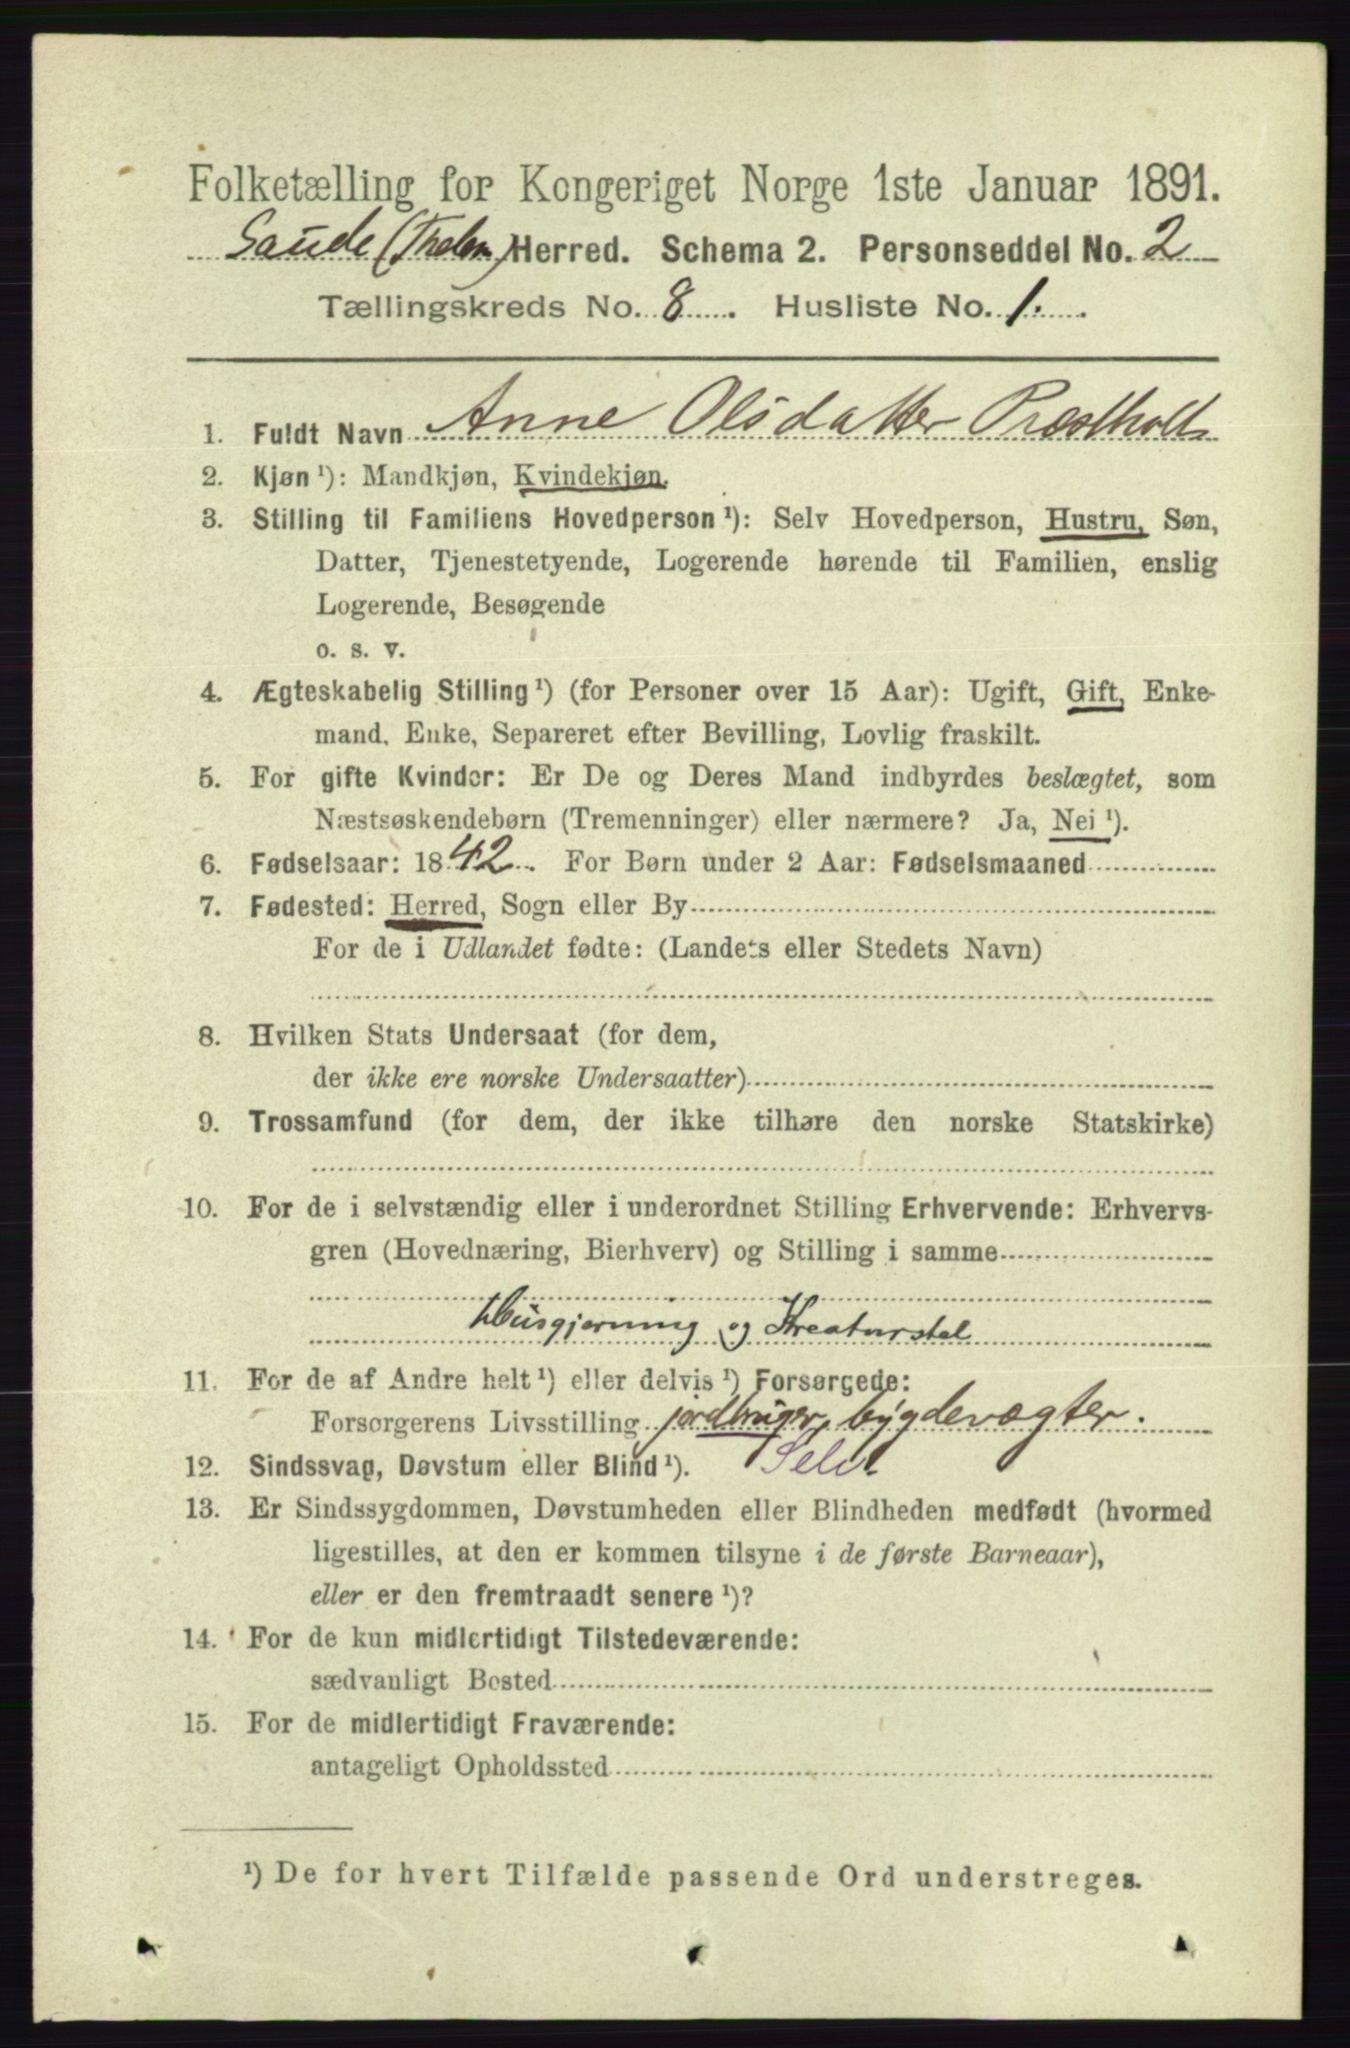 Folketælling for Kongeriget Norge 1ste Januar 1891.
Saude (Thelem) Herred. Schema 2. Personseddel No. 2
Tællingskreds No. 8. Husliste No. 1.
1. Fuldt Navn Anne Olsdatter Præstholt
2. Kjøn ¹): Mandkjøn, Kvindekjøn.
3. Stilling til Familiens Hovedperson ¹): Selv Hovedperson, Hustru, Søn,
Datter, Tjenestetyende, Logerende hørende til Familien, enslig
Logerende, Besøgende
o. s. v.
4. Ægteskabelig Stilling ¹) (for Personer over 15 Aar): Ugift, Gift, Enke-
mand, Enke, Separeret efter Bevilling, Lovlig fraskilt.
5. For gifte Kvinder: Er De og Deres Mand indbyrdes beslægtet, som
Næstsøskendebørn (Tremenninger) eller nærmere? Ja, Nei ¹).
6. Fødselsaar: 1842. For Børn under 2 Aar: Fødselsmaaned
7. Fødested: Herred, Sogn eller By
For de i Udlandet fødte: (Landets eller Stedets Navn)
8. Hvilken Stats Undersaat (for dem,
der ikke ere norske Undersaatter)
9. Trossamfund (for dem, der ikke tilhøre den norske Statskirke)
10. For de i selvstændig eller i underordnet Stilling Erhvervende: Erhvervs-
gren (Hovednæring, Bierhverv) og Stilling i samme
Husgjerning og Kreaturstel
11. For de af Andre helt ¹) eller delvis ¹) Forsørgede:
Forsørgerens Livsstilling jordbruger, bygdevægter.
12. Sindssvag, Døvstum eller Blind ¹). Selv
13. Er Sindssygdommen, Døvstumheden eller Blindheden medfødt (hvormed
ligestilles, at den er kommen tilsyne i de første Barneaar),
eller er den fremtraadt senere ¹)?
14. For de kun midlertidigt Tilstedeværende:
sædvanligt Bosted
15. For de midlertidigt Fraværende:
antageligt Opholdssted
¹) De for hvert Tilfælde passende Ord understreges.